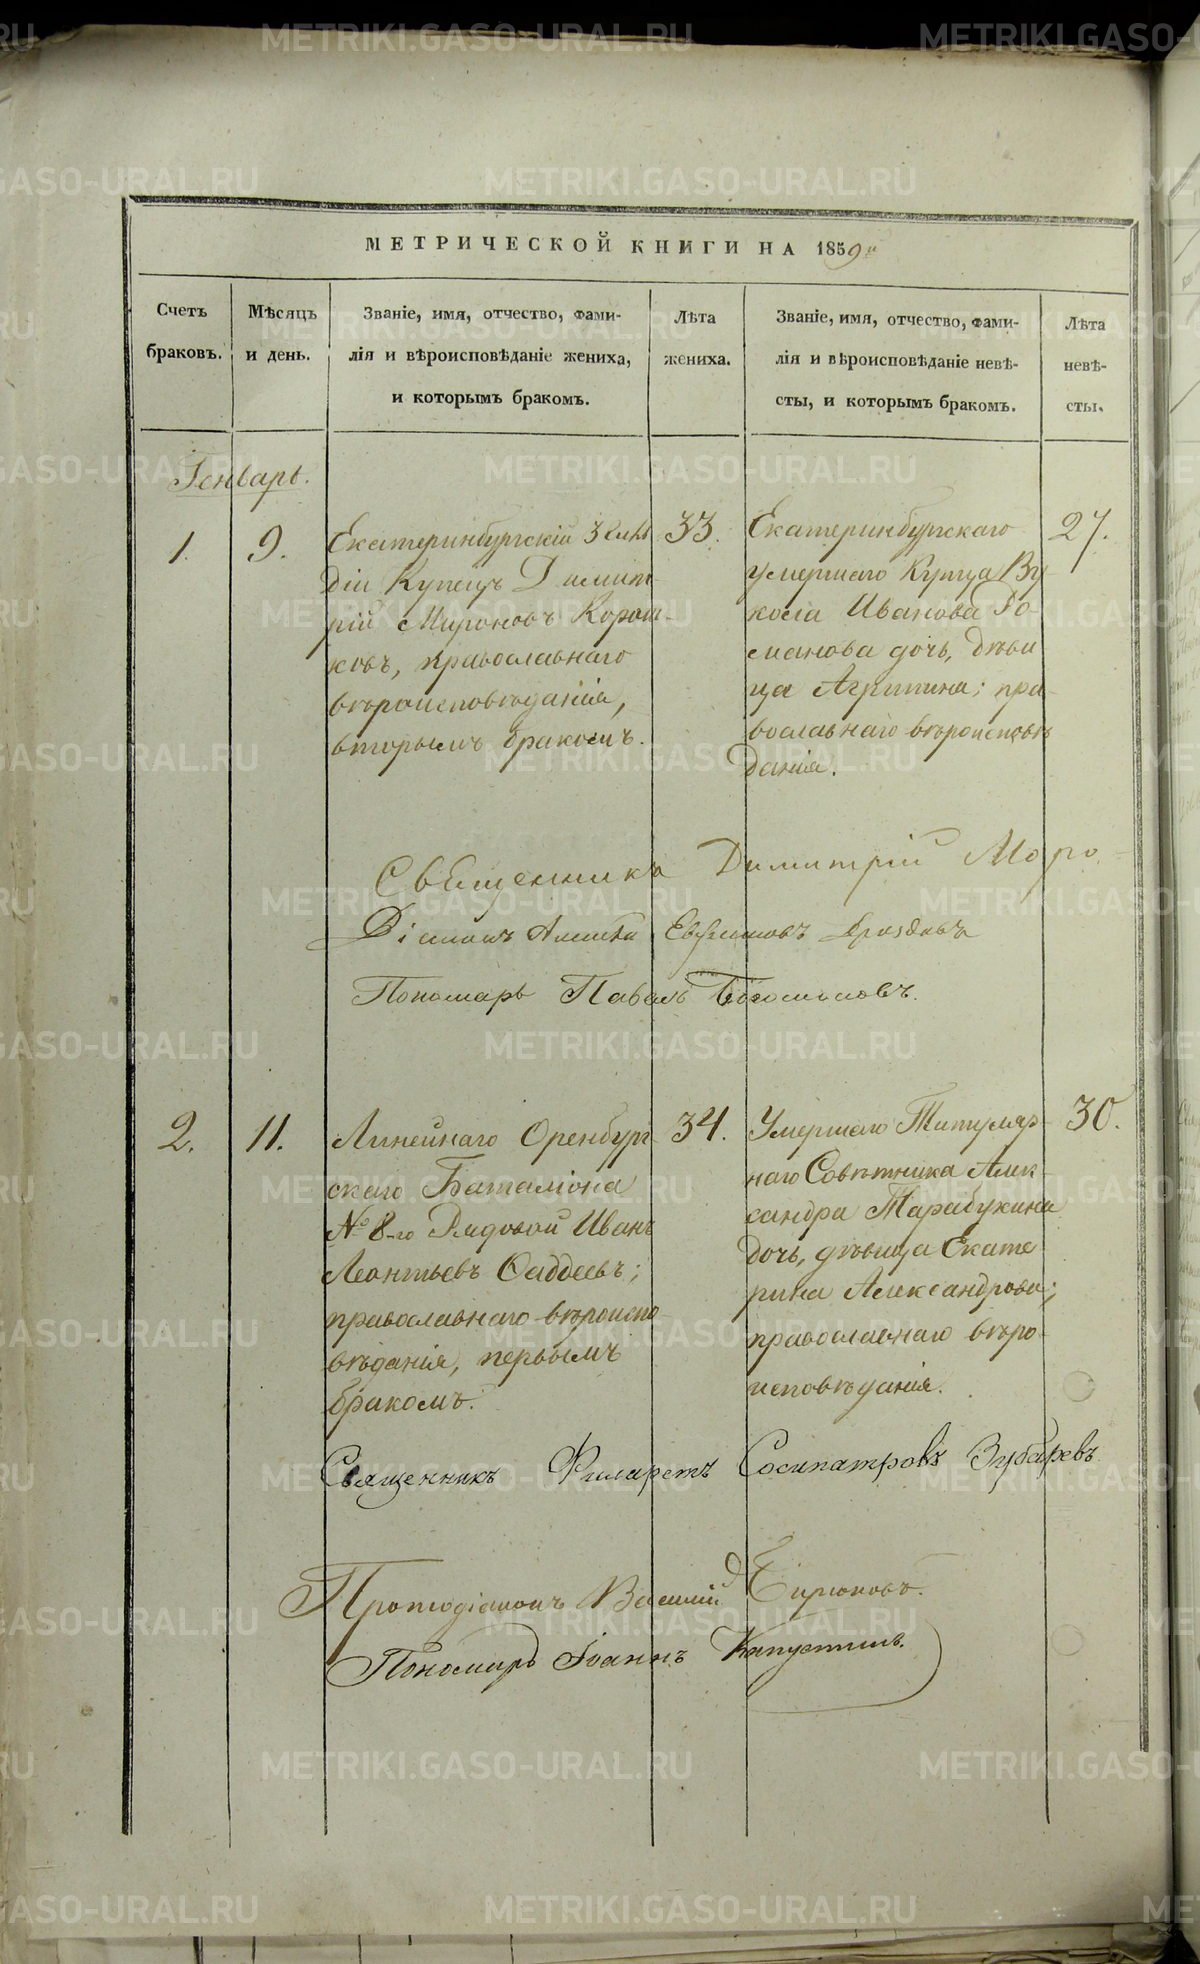 МЕТРИЧЕСКОЙ КНИГИ НА 1859й
Счетъ
браковъ.
Мѣсяцъ
и день.
Званіе, имя, отчество, фами-
лія и вѣроисповѣданіе жениха,
и которымъ бракомъ.
Лѣта
жениха.
Званіе, имя, отчество, фами-
лія и вѣроисповѣданіе невѣ-
сты, и которымъ бракомъ.
Лѣта
невѣ-
сты.
Генварь.
1.
9.
Екатеринбургскій 3 Гиль
діи Купецъ Димит-
рій Мироновъ Корот-
ковъ, православнаго
вѣроисповѣданія,
вторымъ бракомъ.
33.
Екатеринбургскаго
умершаго Купца Ву-
кола Иванова Ро-
манова дочь, дѣви
ца Агрипина; пра-
вославнаго вѣроисповѣ
данія.
27.
Священникъ Димитрій
Діаконъ Евфимовъ Дроздовъ
Пономарь Павелъ Богомоловъ.
2.
11.
Линейнаго Оренбург-
скаго Баталіона
№ 8-го Рядовой Иванъ
Леонтьевъ Фаддеевъ;
православнаго вѣроиспо-
вѣданія, первымъ
бракомъ.
34.
Умершаго Титуляр-
наго Совѣтника Алек-
сандра Тарабукина
дочь, дѣвица Екате
рина Александрова;
православнаго вѣро-
исповѣданія.
30.
Священникъ Филаретъ Сосипатровъ Зубаревъ.
Протодіаконъ Василій Бирюковъ.
Пономарь Іоаннъ Капустинъ.
METRIKI.GASO-URAL.RU